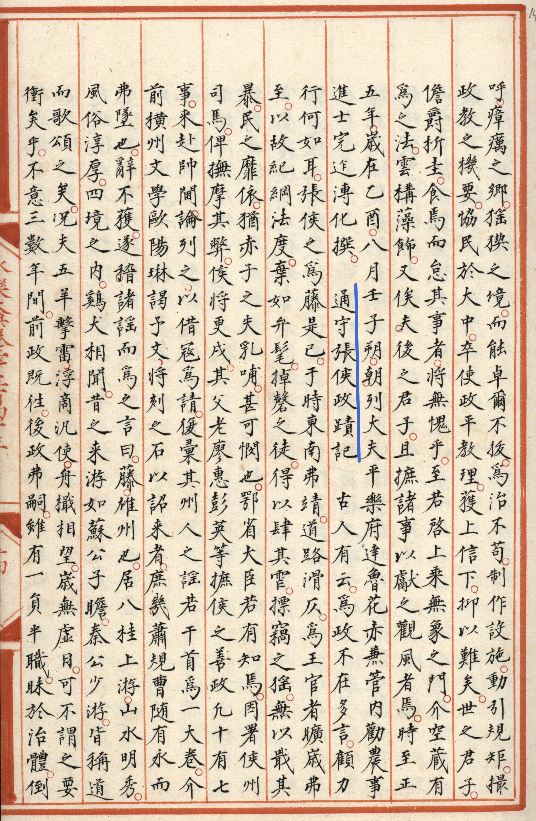 呼瘴癘之鄉猺獠之境而能卓爾不拔為治不苟制作設施動引規矩撮
政教之機要協民於大中卒使政平教理獲上信下抑以難矣世之君子
儋爵析圭食焉而怠其事者將無愧乎至若啓上乘無象之門介空蔵有
為之法雲構藻飾又俟夫後之君子且摭諸事以獻之觀風者焉時至正
五年歲在乙酉八月壬子朔朝列大夫平樂府達魯花赤兼管内勸農事
進士完迮溥化撰 通守張侯政蹟記 古人有云為政不在多言顧力
行何如耳張侯之為藤是已于時東南弗靖道路滑仄為王官者曠歲弗
至以故紀綱法度棄如弁髦掉磬之徒得以肆其雪摽竊之猺無以戢其
暴民之靡依猶赤子之失乳哺甚可憫也鄂省大臣若有知焉罔署侯州
司馬俾撫摩其弊侯將更戍其父老廖惠彭英等摭侯之善政凡十有七
事来赴帥閫論列之以借冦為請復彙其州人之謡若干首為一大卷介
前横州文學歐陽琳謁予文將刻之石以詔来者庶幾蕭規曹随有永而
弗墜也辭不獲遂稽諸謡而為之言曰藤碓州也居八桂上游山水明秀
風俗淳厚四境之内鷄犬相聞昔之来游如蘇公子瞻秦公少游皆稱道
而歌頌之矣况夫五羊擊雷浮商汎使舟檝相望歲無虚日可不謂之要
衝矣乎不意三數年間前政既往後政弗嗣雖有一負半職昧於治體倒